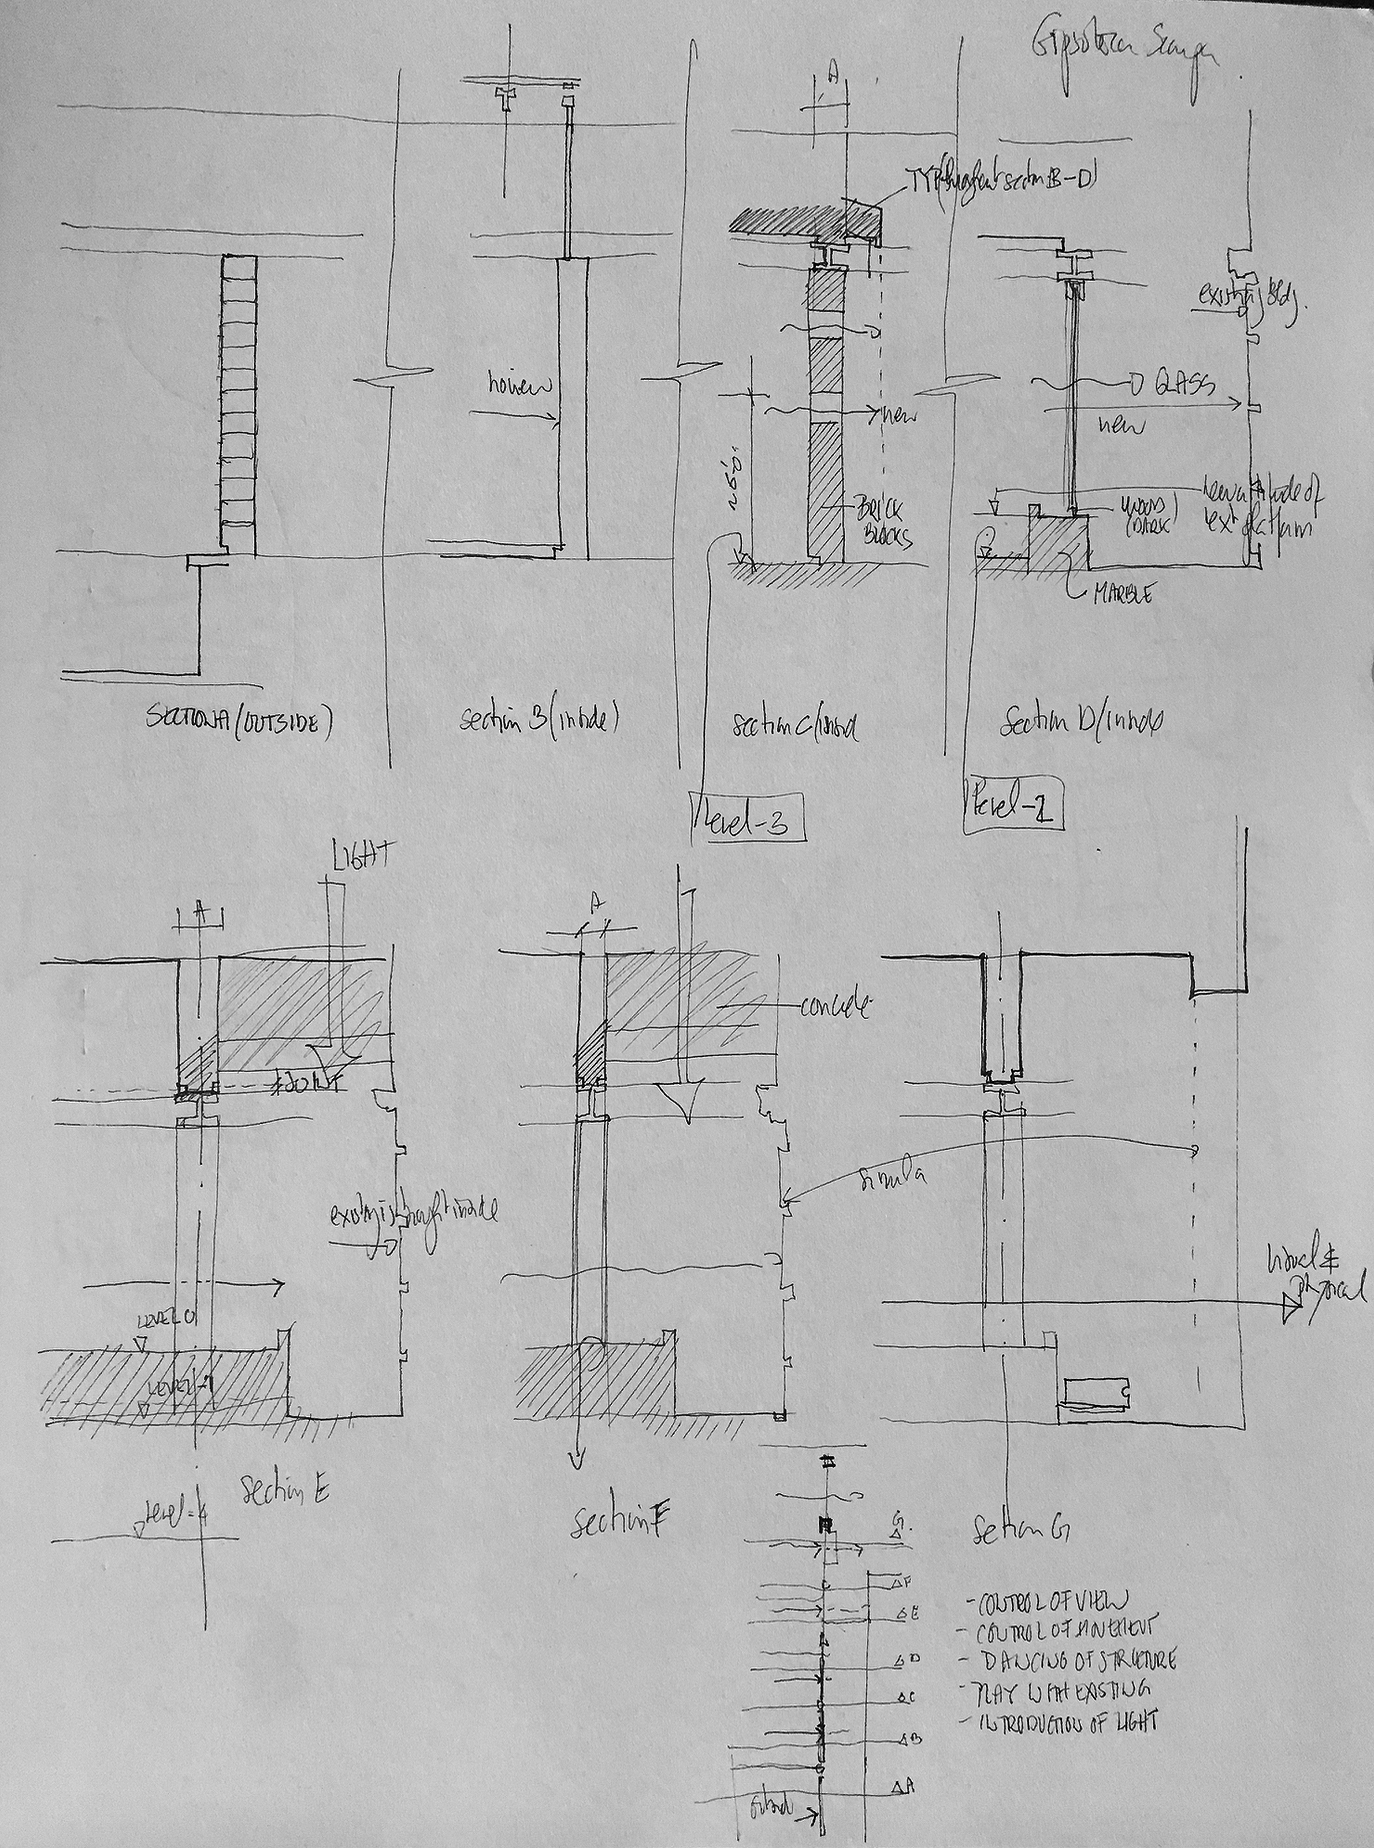 Gipsoteca Scarpa
A
TYP (throughout section B-D)
existing bldg.
no view
GLASS
view
view
~5'0"
BRICK
BLOCKS
WOOD
(DARK
ext platform
MARBLE
SECTION A (OUTSIDE)
section B (inside)
section C/inside
section D/inside
Level-3
Level-2
LIGHT
A
A
concrete
JOINT
similar
visual &
physical
LEVEL 0
LEVEL-1
Level-4
section E
section F
section G
G.
F
E
D
C
B
A
- CONTROL OF VIEW
- CONTROL OF MOVEMENT
- DANCING OF STRUCTURE
- PLAY WITH EXISTING
- INTRODUCTION OF LIGHT